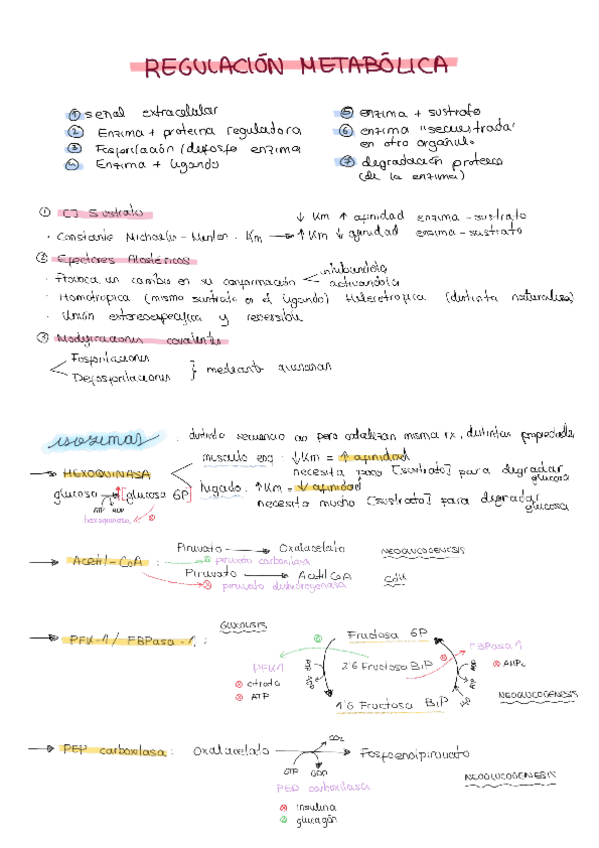 REGULACIÓN METABÓLICA
① señal extracelular
② Enzima + proteina reguladora
③ Fosforilación / defosfo enzima
④ Enzima + ligando
⑤ enzima + sustrato
⑥ enzima "secuestrada"
en otro orgánulo
⑦ degradación proteica
(de la enzima)
① [] Sustrato
↓ Km ↑ afinidad enzima - sustrato
· Constante Michaelis - Menten · Km → ↑ Km ↓ afinidad enzima - sustrato
② Efectores Alostéricos
· Provoca un cambio en su conformación
inhibiendola
activandola
· Homotropica (mismo sustrato en el ligando) Heterotropica (distinta naturaleza)
· Unión estereoespecifica y reversible
③ Modificaciones covalentes
Fosforilaciones
Defosforilaciones
} mediante quinasas
isozimas : distinta secuencia aa pero catalizan misma rx, distintas propiedades
→ HEXOQUINASA
musculo esq : ↓Km = ↑ afinidad
necesita poco [sustrato] para degradar
glucosa
glucosa → [glucosa 6P]
ATP ADP
hexoquinasa
hígado : ↑Km = ↓ afinidad
necesita mucho [sustrato] para degradar
glucosa
→ Acetil-CoA :
Piruvato → Oxalacetato NEOGLUCOGENESIS
piruvato carboxilasa
Piruvato → Acetil CoA
piruvato dishidrogenasa
→ PFK-1 / FBPasa-1 :
GLUCOLISIS
Fructosa 6P
PFK1
citrato
ATP
2'6 Fructosa BiP
FBPasa 1
AMPc
1'6 Fructosa BiP
H₂O
NEOGLUCOGENESIS
→ PEP carboxilasa : Oxalacetato → Fosfoenolpiruvato
CO₂
GTP GDP
PEP carboxilasa
NEOGLUCOGENESIS
insulina
glucagón